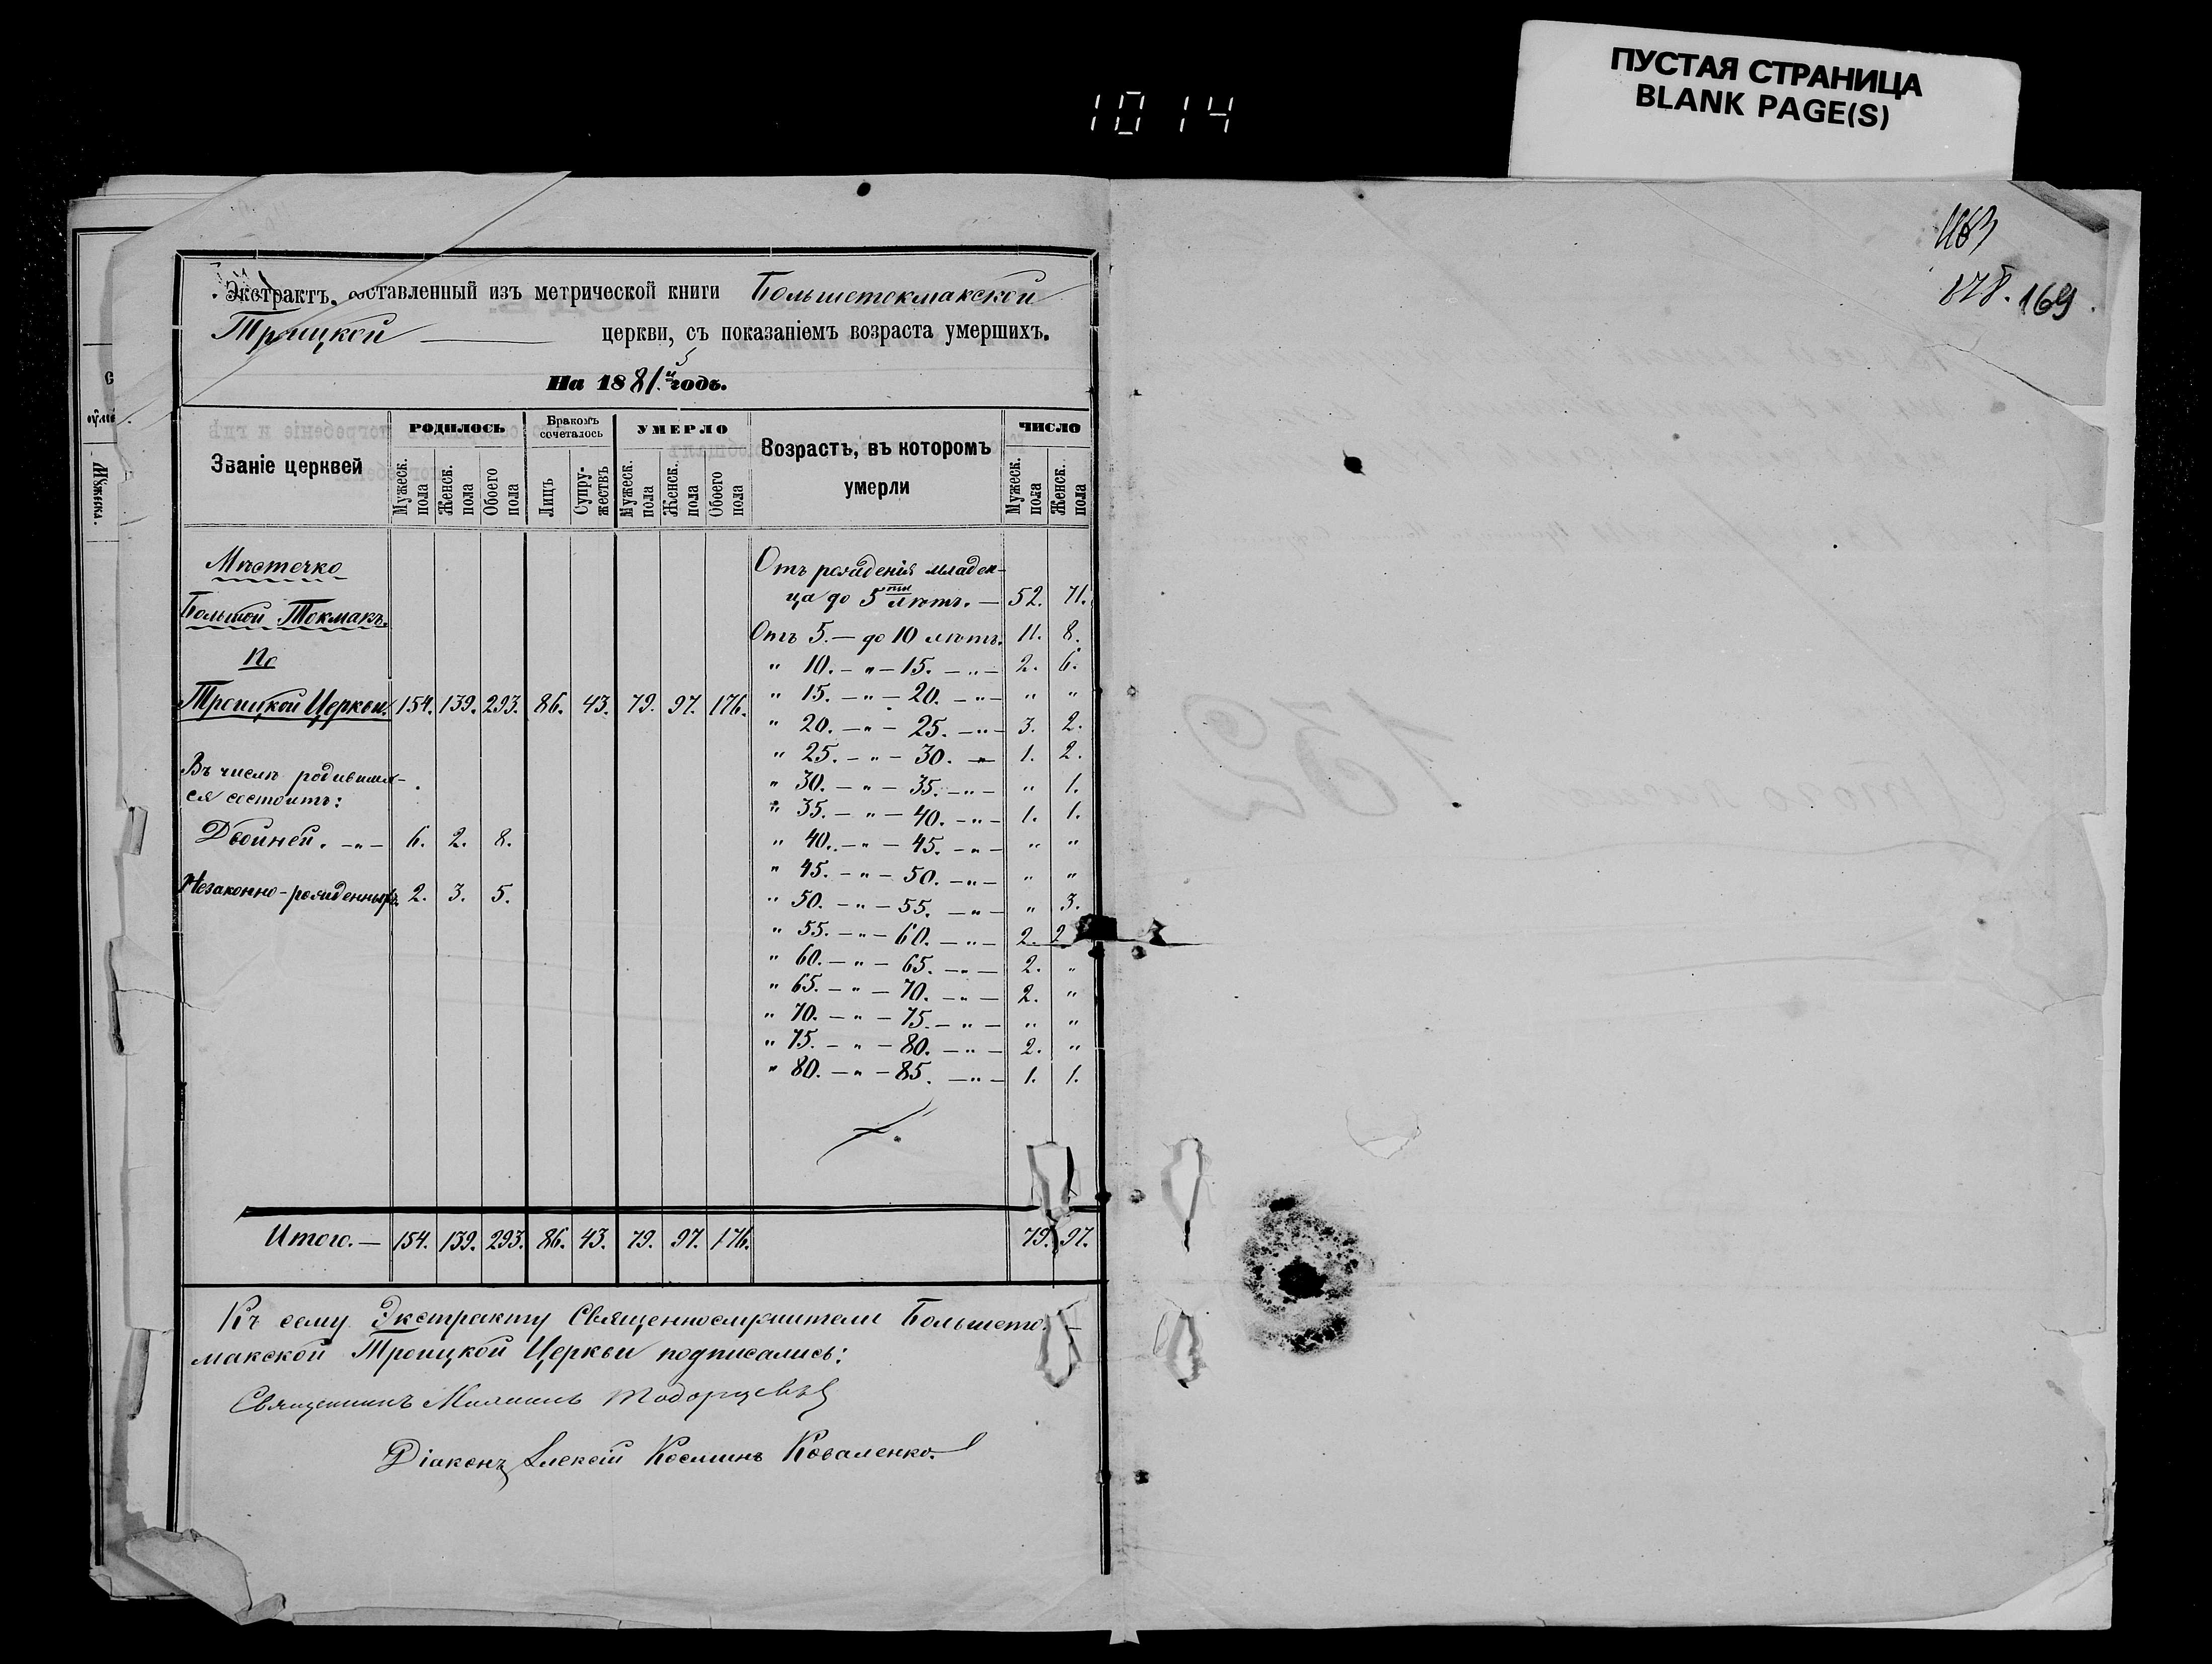 1014
ПУСТАЯ СТРАНИЦА
BLANK PAGE(S)
169
Экстрактъ, составленный изъ метрической книги Большетокмакской
Троицкой — церкви, съ показаніемъ возраста умершихъ.
На 1881й годъ.
Званіе церквей | РОДИЛОСЬ | Бракомъ сочеталось | УМЕРЛО | Возрастъ, въ которомъ умерли | ЧИСЛО
Мужеск. пола | Женск. пола | Обоего пола | Лицъ | Супружествъ | Мужеск. пола | Женск. пола | Обоего пола | Мужеск. пола | Женск. пола
Мѣстечко
Большой Токмакъ.
По
Троицкой Церкви. 154. 139. 293. 86. 43. 79. 97. 176.
Въ числѣ родивших-
ся состоитъ:
Двойней. -"- 6. 2. 8.
Незаконно-рожденныхъ. 2. 3. 5.
Отъ рожденія младен-
ца до 5ти лѣтъ. — 52. 71.
Отъ 5. — до 10 лѣтъ. 11. 8.
" 10. — " — 15. — " — 2. 6.
" 15. — " — 20. — " — " "
" 20. — " — 25. — " — 3. 2.
" 25. — " — 30. — " — 1. 2.
" 30. — " — 35. — " — " 1.
" 35. — " — 40. — " — 1. 1.
" 40. — " — 45. — " — " "
" 45. — " — 50. — " — " "
" 50. — " — 55. — " — " 3.
" 55. — " — 60. — " — 2. 2
" 60. — " — 65. — " — 2. "
" 65. — " — 70. — " — 2. "
" 70. — " — 75. — " — " "
" 75. — " — 80. — " — 2. "
" 80. — " — 85. — " — 1. 1.
Итого. — 154. 139. 293. 86. 43. 79. 97. 176. 79. 97.
Къ сему Экстракту Священнослужители Большето-
макской Троицкой Церкви подписались:
Священникъ
Діаконъ Алексій Косминъ Коваленко.